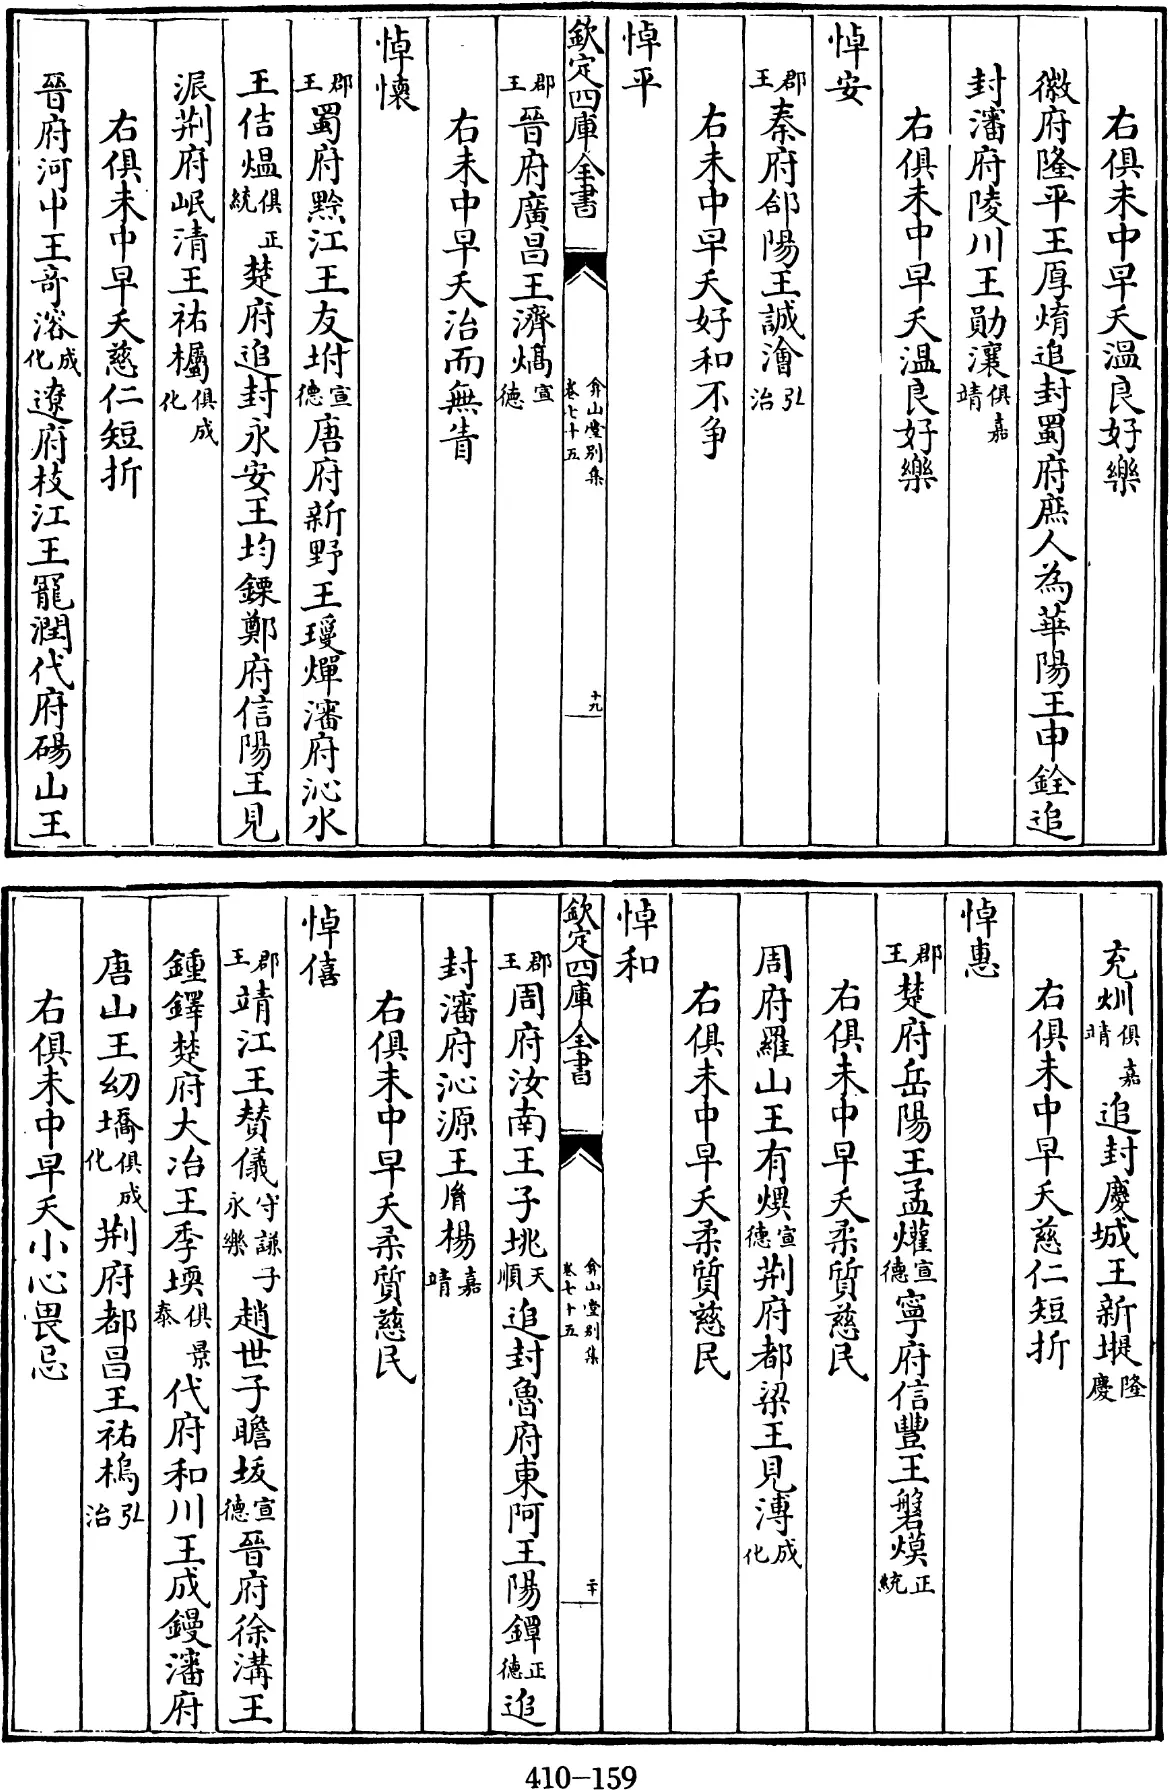 右俱未中早夭溫良好樂
徽府隆平王厚焴追封蜀府庶人為華陽王申銓追
封瀋府陵川王勛瀼俱嘉靖
右俱未中早夭溫良好樂
悼安
郡王秦府郃陽王誠澮弘治
右未中早夭好和不爭
悼平
欽定四庫全書
弇山堂別集
卷七十五
十九
郡王晉府廣昌王濟熇宣德
右未中早夭治而無眚
悼懷
郡王蜀府黔江王友㘰宣德唐府新野王燀瀋府沁水
王佶煴俱正統楚府追封永安王均鄭府信陽王見
派荆府岷清王祐俱成化
右俱未中早夭慈仁短折
晉府河中王奇溶成化遼府枝江王寵澗代府碭山王
充俱嘉靖追封慶城王新堤隆慶
右俱未中早夭慈仁短折
悼惠
郡王楚府岳陽王孟爟宣德寧府信豐王磐熯正統
右俱未中早夭柔質慈民
周府羅山王有熼宣德荆府都梁王見溥成化
右俱未中早夭柔質慈民
悼和
欽定四庫全書
弇山堂別集
卷七十五
二十
郡王周府汝南王子垗天順追封魯府東阿王陽鐔正德追
封瀋府沁源王胤楊嘉靖
右俱未中早夭柔質慈民
悼僖
郡王靖江王贊儀守謙子永樂趙世子瞻坺宣德晉府徐溝王
鍾鐸楚府大冶王季堧俱景泰代府和川王成鏝瀋府
唐山王幼㙯俱成化荆府都昌王祐𣚦弘治
右俱未中早夭小心畏忌
410-159